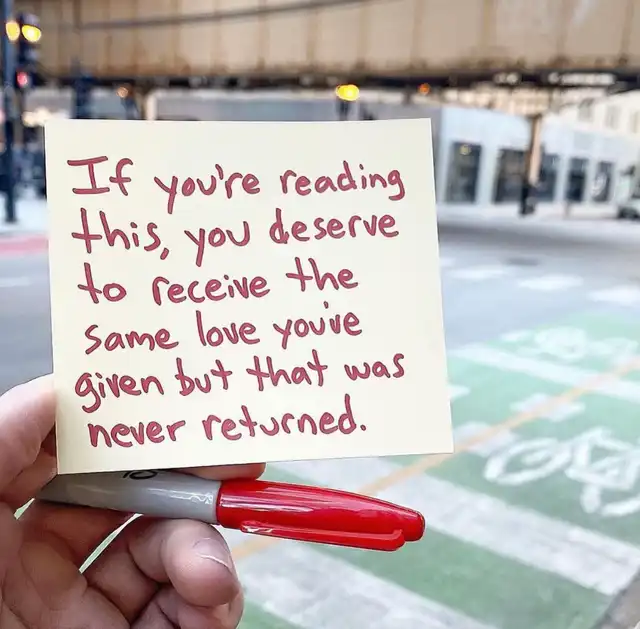 If you're reading
this, you deserve
to receive the
same love you've
given but that was
never returned.